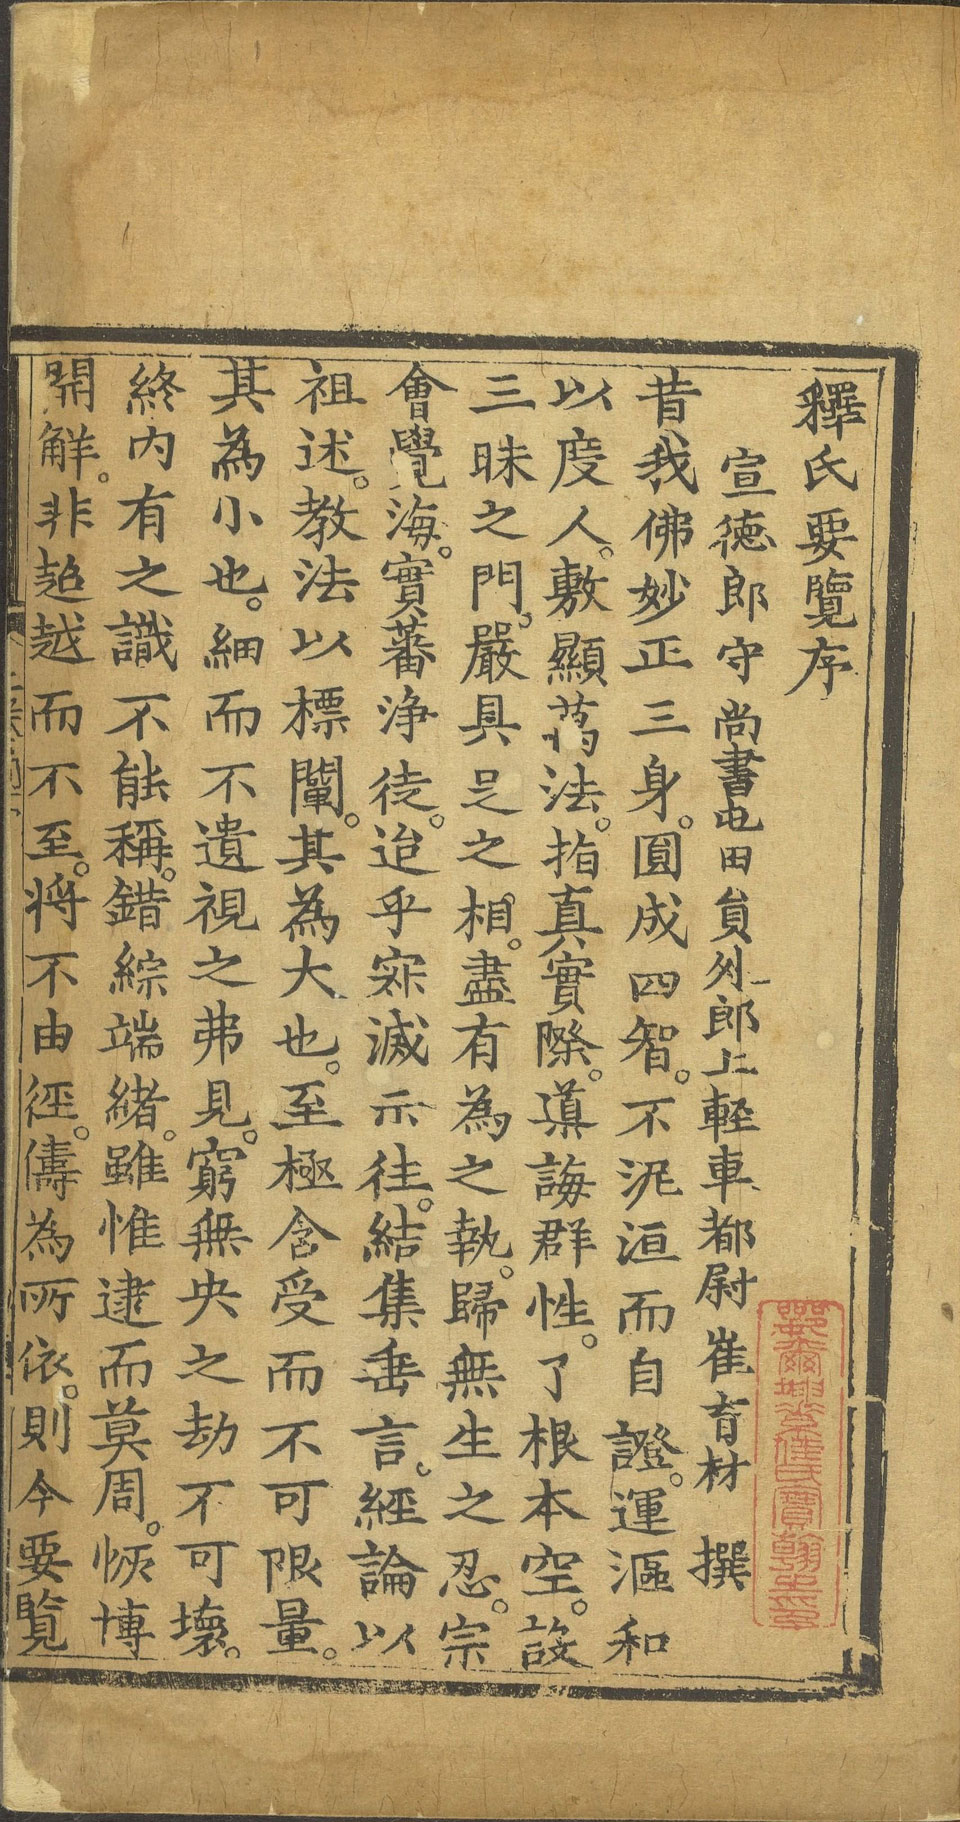 釋氏要覽序
宣德郎守尚書屯田員外郎上輕車都尉崔育材 撰
昔我佛妙正三身。圓成四智。不泥洹而自證。運漚和
以度人。敷顯萬法。指真實際。導誨群性。了根本空。設
三昧之門。嚴具足之相。盡有為之執。歸無生之忍。宗
會覺海。實蕃淨徒。迨乎寂滅示往。結集垂言。經論以
祖述。教法以標闡。其為大也。至極含受而不可限量。
其為小也。細而不遺視之弗見。窮無央之劫不可壞。
終內有之識不能稱。錯綜端緒。雖惟逮而莫周。恢博
開解。非超越而不至。將不由徑。儔為所依。則今要覽